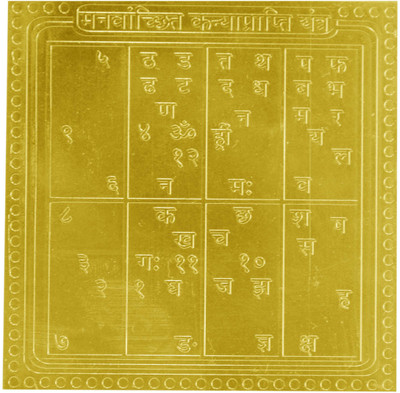 मनवांच्छित कन्याप्राप्ति यंत्र
५ ठ ड त थ प फ
ढ ट द ध ब भ
ण न म र
९ ४ ॐ ह्रीं य
१२ ल
६ न मः व
८ क छ श ष
ख च स
३ गः ११ १०
३ १ घ ज झ ह
७ ङ ज्ञ क्ष